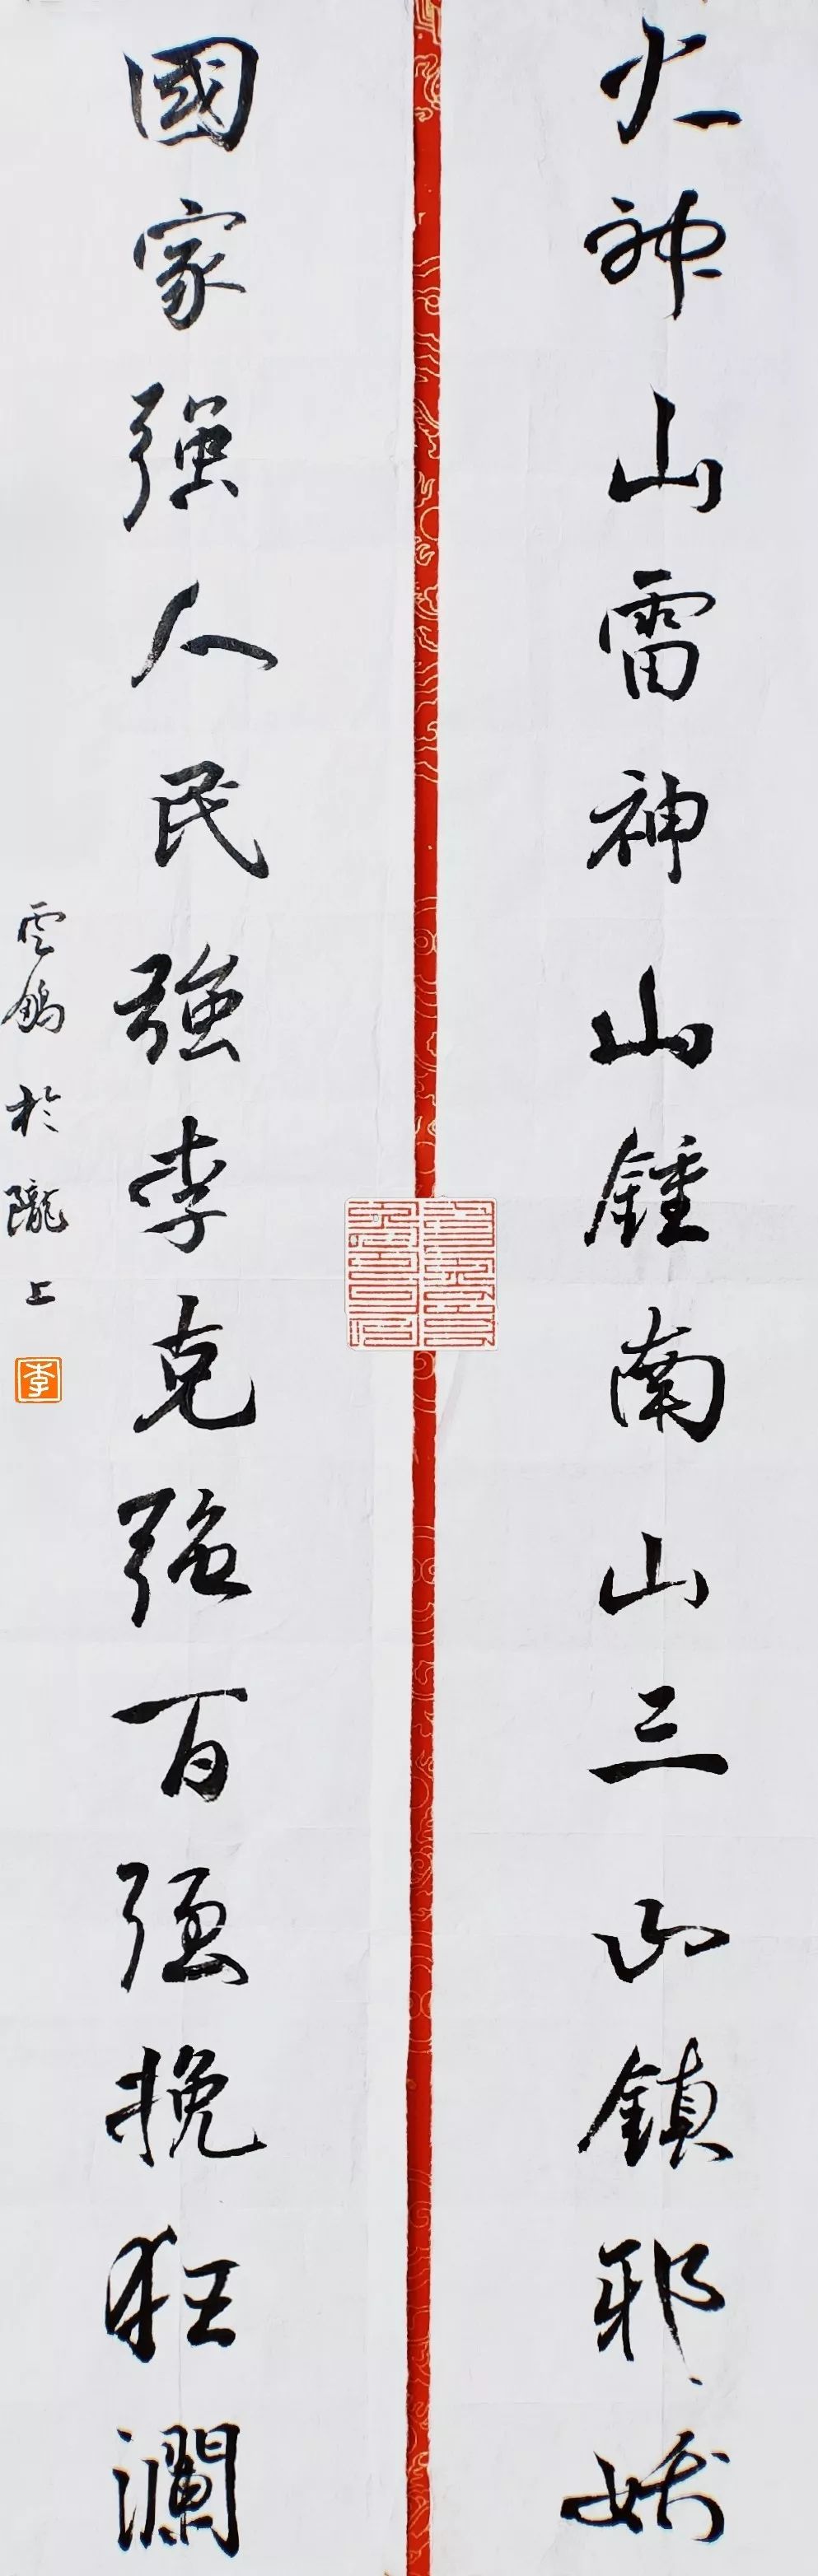 火神山雷神山鍾南山三山鎮邪妖
國家強人民強李克強百強挽狂瀾
雲鵬於隴上
李